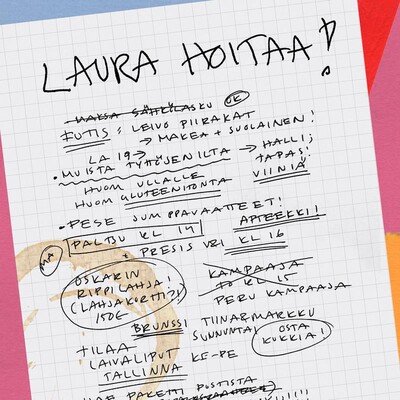 LAURA HOITAA!
MAKSA SÄHKÖLASKU OK
FUTIS: LEIVO PIIRAKAT
→ MAKEA + SUOLAINEN!
LA 19 → → HALLI;
• MUISTA TYTTÖJENILTA TAPAS!
HUOM ULLALLE VIINIÄ
HUOM GLUTEENITONTA
• PESE JUMPPAVAATTEET!
APTEEKKI!
PALTSU KL 14
+ PRESIS VRI KL 16
MA
OSKARIN
RIPPILAHJA!
(LAHJAKORTTI?)
150€
KAMPAAJA
TO KL 15
PERU KAMPAAJA
BRUNSSI TIINA & MARKKU
SUNNUNTAI
OSTA
KUKKIA!
TILAA
LAIVALIPUT KE-PE
TALLINNA
HAE PAKETTI POSTISTA